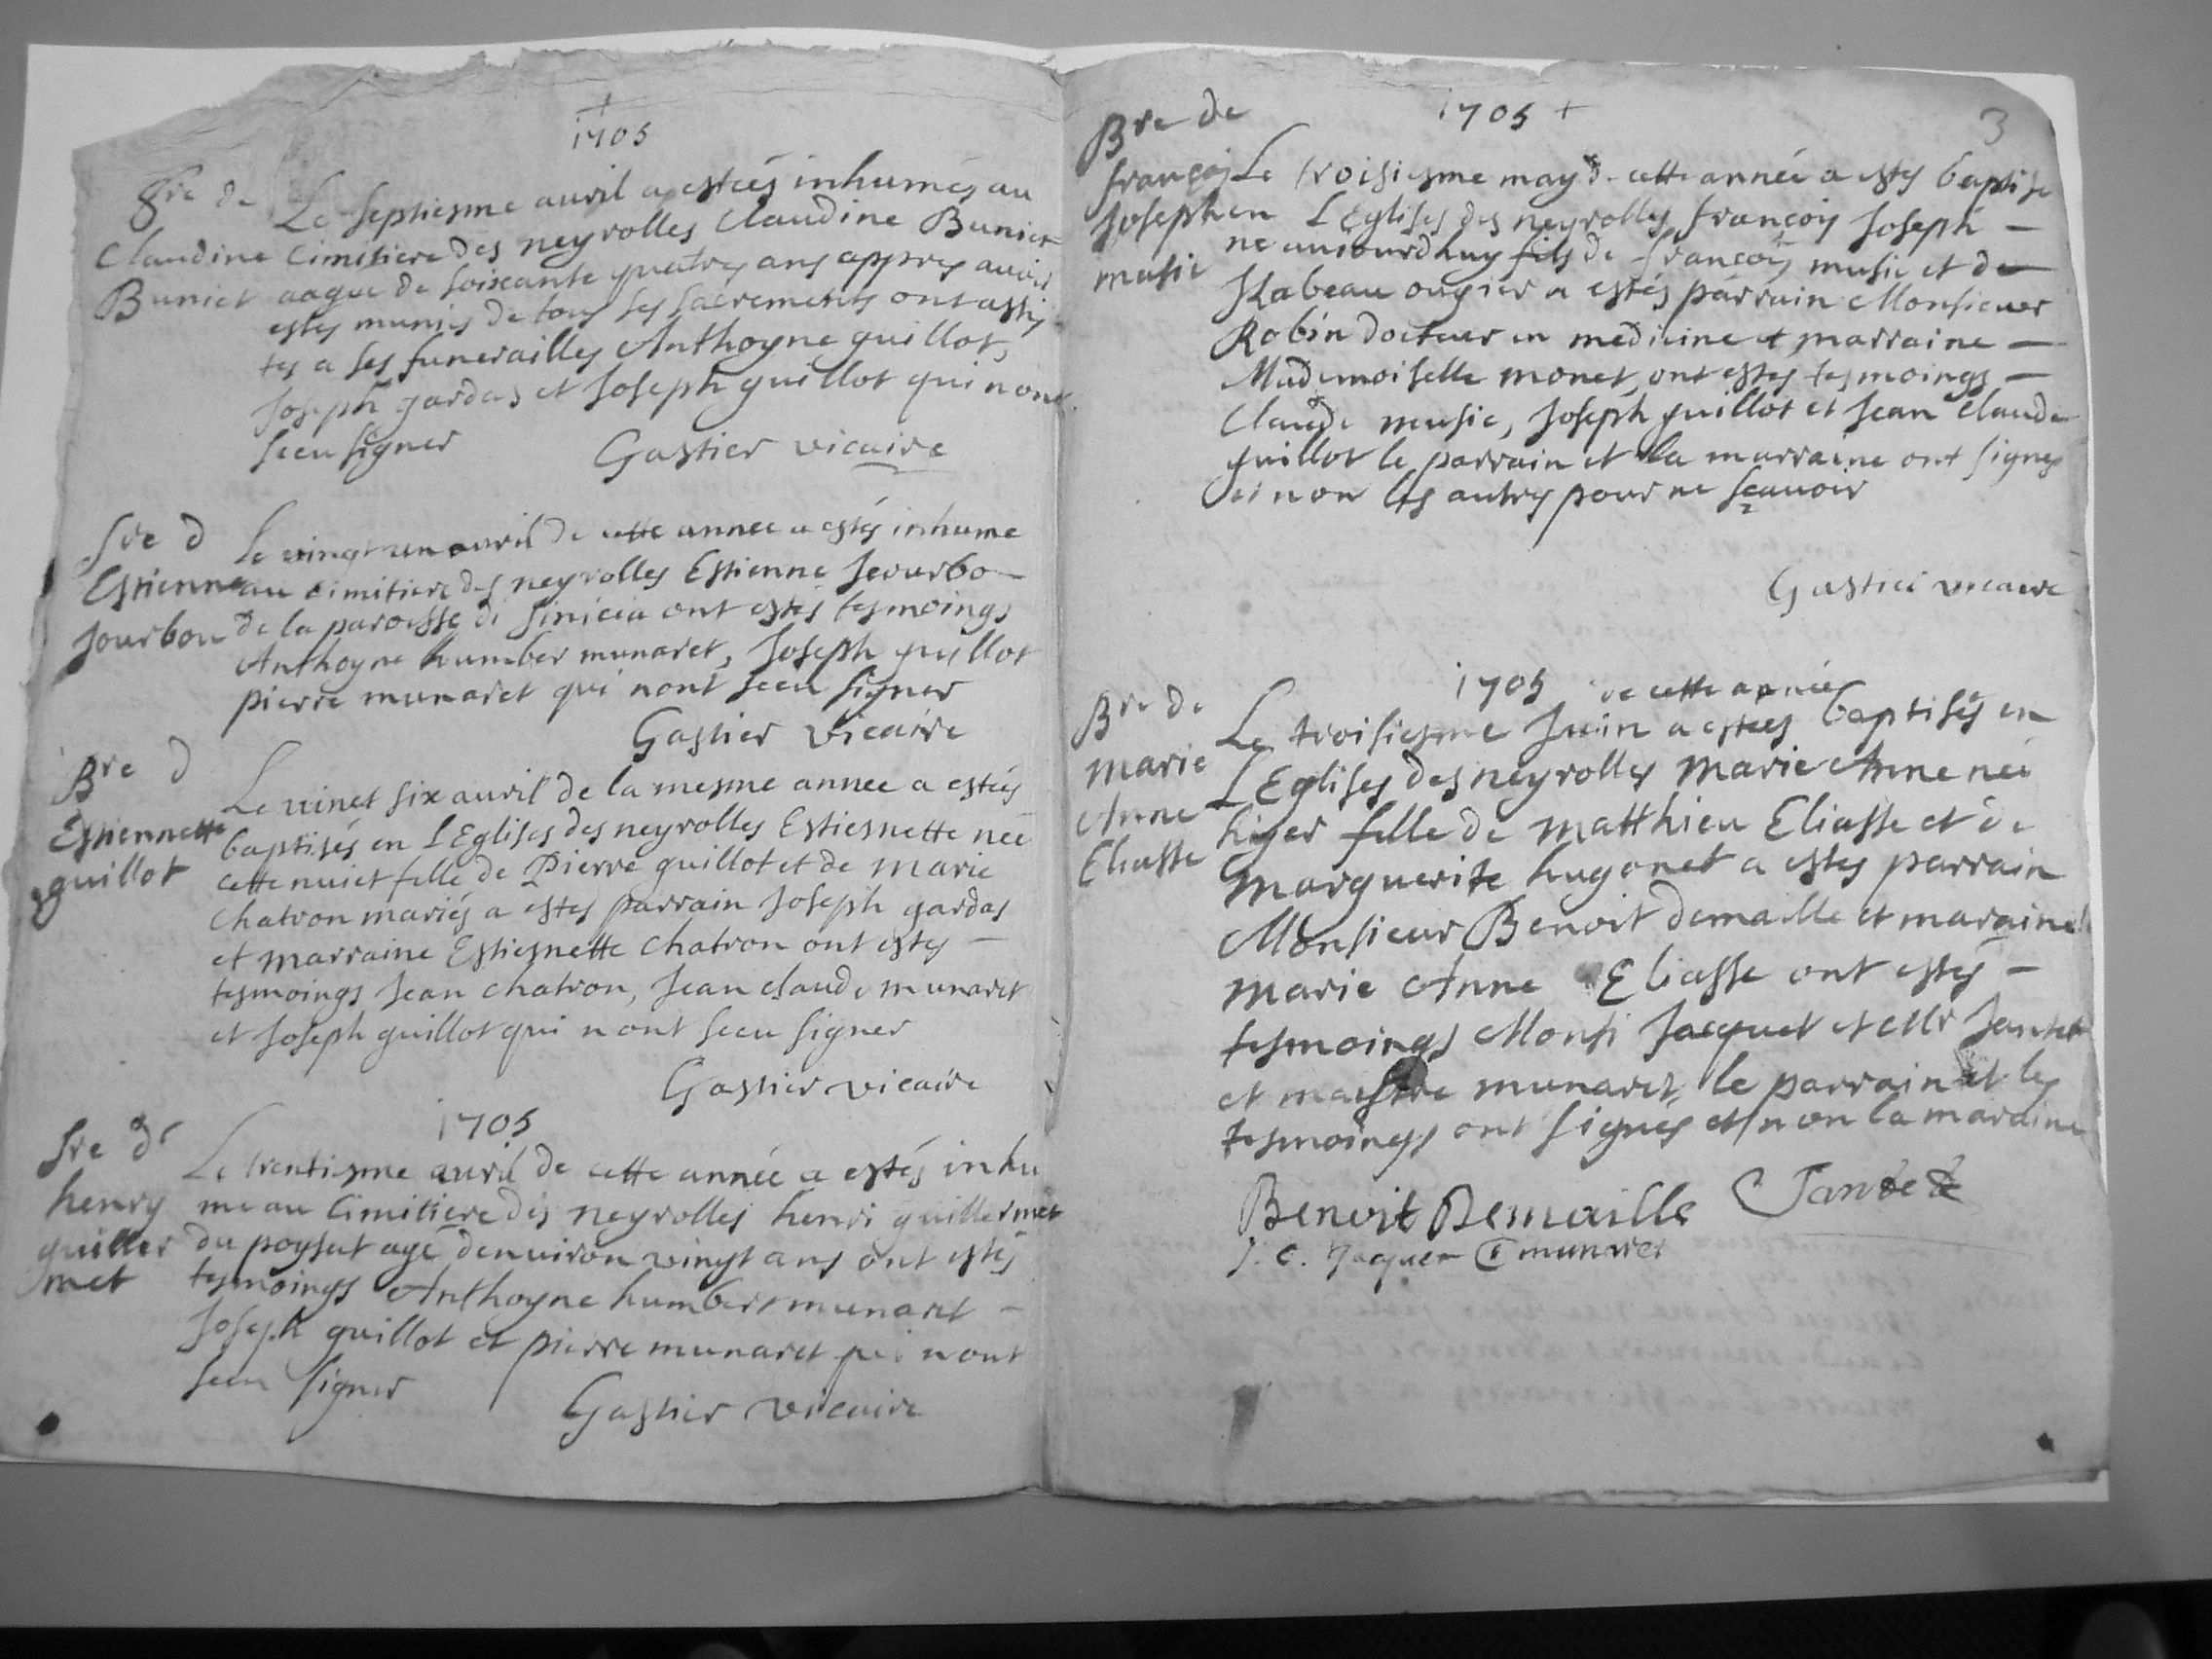 +
1705
Sre de
Claudine
Buniet
Le septiesme auril a estéés inhumés au
Cimitiere des neyrolles Claudine Buniet
aague de soixante quatres ans appres auoir
estes munis de tous ses sacrements ont assis
tes a ses funerailles Anthoyne guillot,
Joseph gardas et Joseph guillot qui nont
sceu signer
Gastier vicaire
Sre d
Estienne
Jourbon
Le vingt un auril de cette annee a estés inhume
au cimitiere des neyrolles Estienne
de la paroisse de ont estés tesmoings
Anthoyne humber munaret, Joseph guillot
pierre munaret qui nont sceu signer
Gastier vicaire
Bre d
Estiennette
guillot
Le vinet six auril de la mesme annee a estéés
baptisés en LEglises des neyrolles Estiesnette née
cette nuict fille de Pierre guillot et de marie
Chatron mariés a estes parrain Joseph gardas
et marraine Estiesnette Chatron ont estes –
tesmoings Jean chatron, Jean claude munaret
et Joseph guillot qui nont sceu signer
Gastier vicaire
1705
Sre de
henry
guiller
met
Le trentiesme auril de cette année a estés inhu
me au Cimitiere des neyrolles henri guillermet
du poysat agé denuiron vingt ans ont estés
tesmoings Anthoyne humbert munaret –
Joseph guillot et pierre munaret qui nont
sceu signer
Gastier vicaire
3
1705 +
Bre de
françois
Joseph
musie
Le troisiesme may de cette année a estes baptise
en LEglises des neyrolles françois Joseph –
ne auiourdhuy fils de françois musie et de
Isabeau ougier a estés parrain Monsieuer
Robin docteuer en medicine et marraine –
Mademoiselle monet, ont estes tesmoings –
Claude musie, Joseph guillot et Jean Claude
guillot le parrain et la marraine ont signes
et non les autres pour ne sçauoir
Gastier vicaire
Bre de
marie
Anne
Eliasse
1705 de cette année
Le troisiesme Juin a estees baptisés en
LEglises des neyrolles marie Anne née
hiyer fille de matthieu Eliasse et de
marguerite hugonet a estes parrain
Monsieur Benoit demaille et maraine
marie Anne Eliasse ont estés –
tesmoings Monsi Jacquet et Mr Jantet
et maistre munaret, le parrain et les
tesmoings ont signés et non la maraine
Benoit Demaille Jantet
J. C. Jaquet munaret